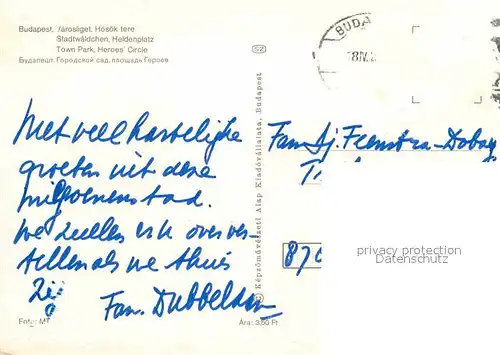 Budapest, Városliget, Hősök tere
Stadtwäldchen, Heldenplatz
Town Park, Heroes' Circle
Будапешт. Городской сад, площадь Героев
SZ
BUDA
Met veel hartelijke
groeten uit deze
miljoenenstad.
We zullen er over ver-
tellen als we thuis
Fam. Dubbeldam
Foto: MT
Ára: 3,60 Ft
© Képzőművészeti Alap Kiadóvállalata, Budapest
Fam. Tj. Feenstra-
privacy protection
Datenschutz